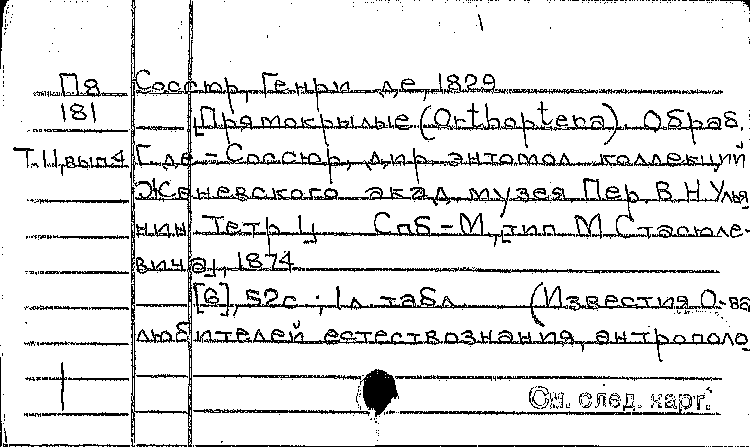 П8 Соссюр, Генри де, 1829
181 Прямокрылые (Orthoptera). Обраб.
Т.11, вып.4 Г. де-Соссюр, дир. энтомол. коллекций
Женевского акад. музея Пер. В Н Улья
нин Тетр. Спб-М, тип М Стасюле-
вича], 1874
[6], 52с.; 1 л. табл. (Известия О-ва
любителей естествознания, антрополо
См. след. карт.